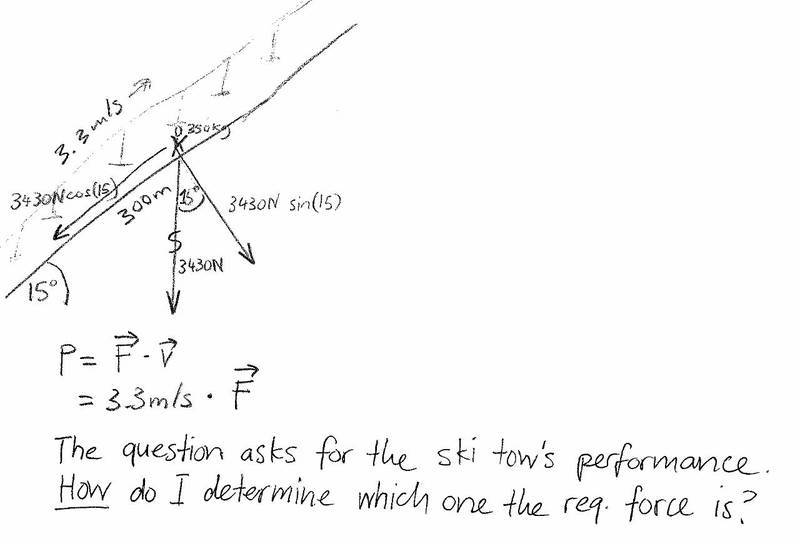 3.3m/s
350kg
3430Ncos(15)
300m
15°
3430N sin(15)
3430N
15°
P = F · V
= 3.3m/s · F
The question asks for the ski tow's performance.
How do I determine which one the req. force is?